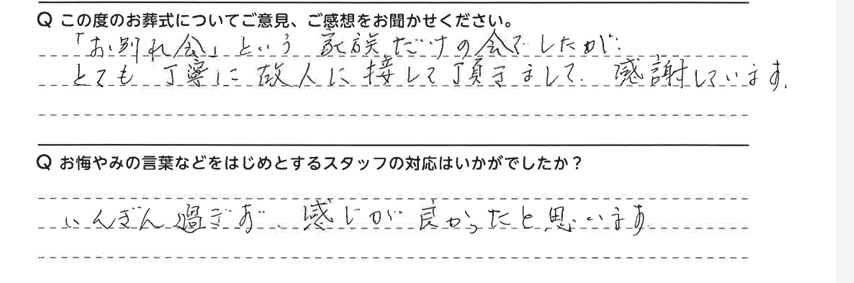 Q この度のお葬式についてご意見、ご感想をお聞かせください。
「お別れ会」という 家族だけの会でしたが、
とても 丁寧に 故人に 接して 頂きまして、感謝しています。
Q お悔やみの言葉などをはじめとするスタッフの対応はいかがでしたか？
いんぎん過ぎず、感じが良かったと思います